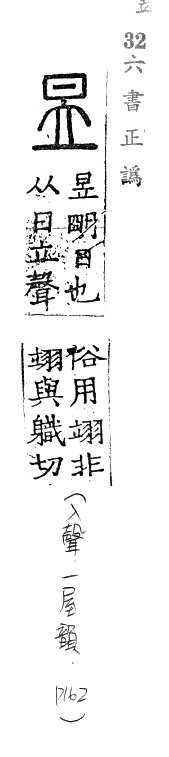 32 六書正譌
昱
昱明日也
从日立聲
俗用翊非
翊與職切
(入聲一屋韻. P162)